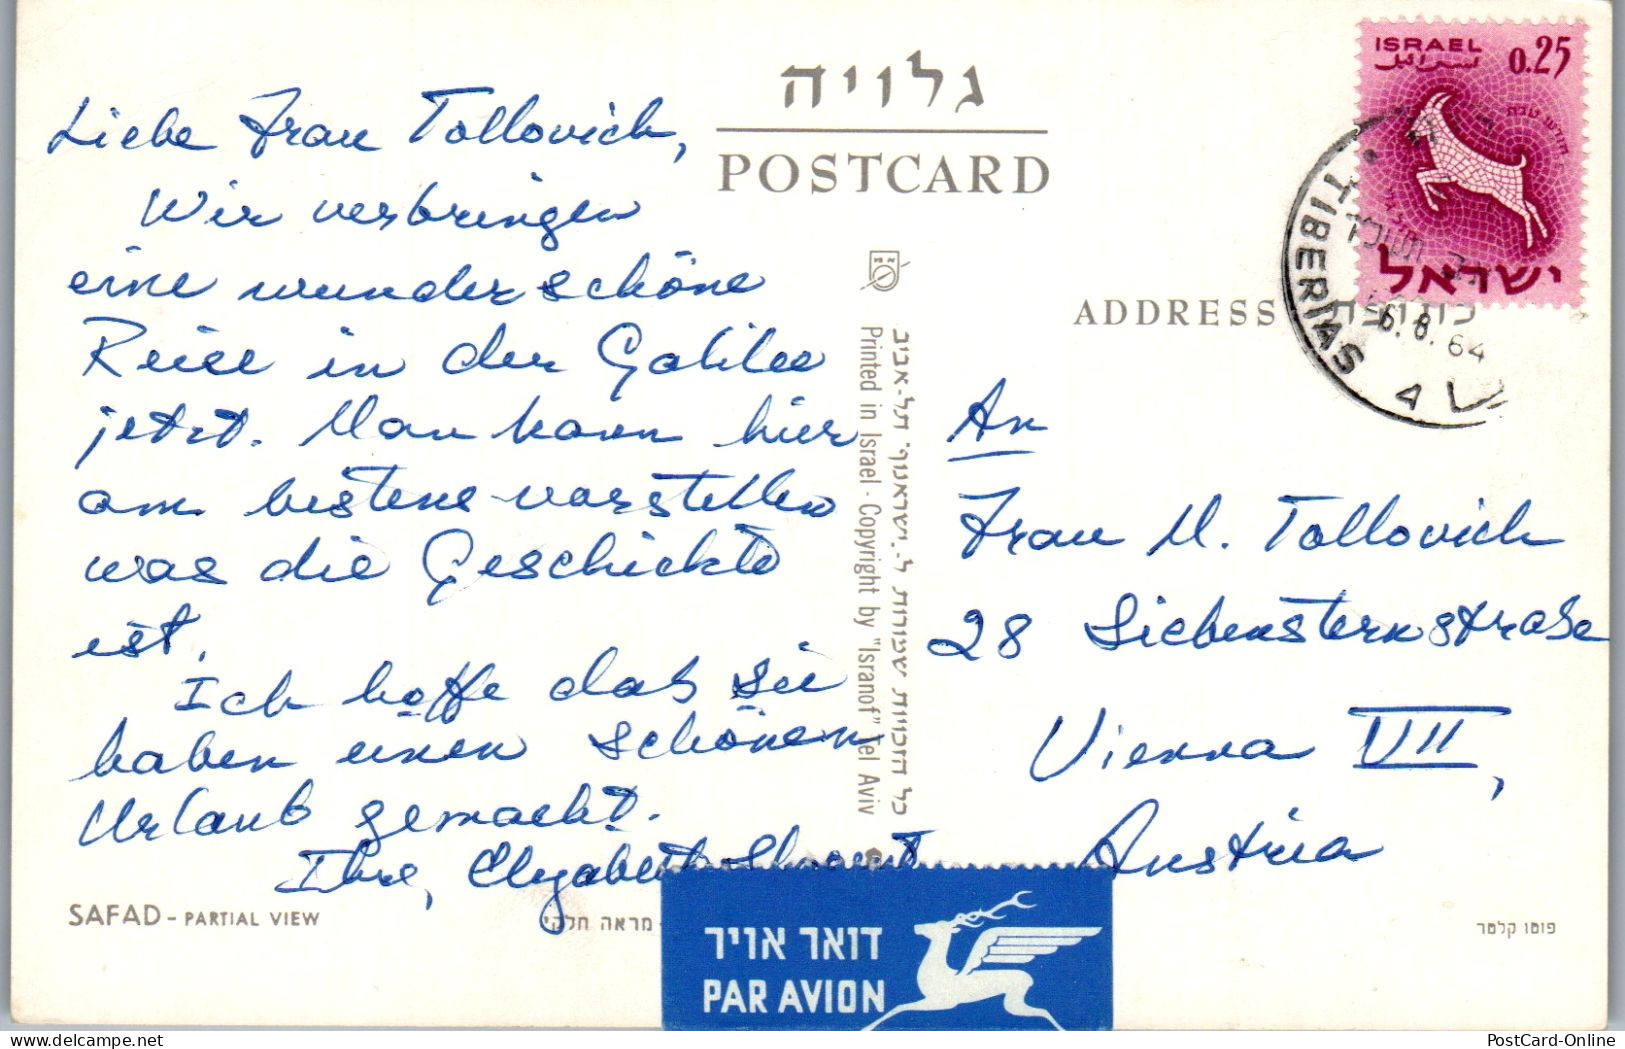 גלויה
POSTCARD
Liebe Frau Tollovich,
Wir verbringen
eine wunderschöne
Reise in der Galilee
jetzt. Man kann hier
am bestens vorstellen
was die Geschichte
ist.
Ich hoffe das Sie
haben einen schönen
Urlaub gemacht.
Ihre, Elizabeth
SAFAD - PARTIAL VIEW
מראה חלקי
כל הזכויות שמורות ל-"ישראנוף" תל-אביב
Printed in Israel - Copyright by "Isranof" Tel Aviv
ISRAEL
إسرائيل
0.25
ישראל
TIBERIAS
6.8.64
ADDRESS
An
Frau M. Tollovich
28 Siebensternstraße
Vienna VII,
Austria
דואר אויר
PAR AVION
פוטו קלטר
PostCard-Online